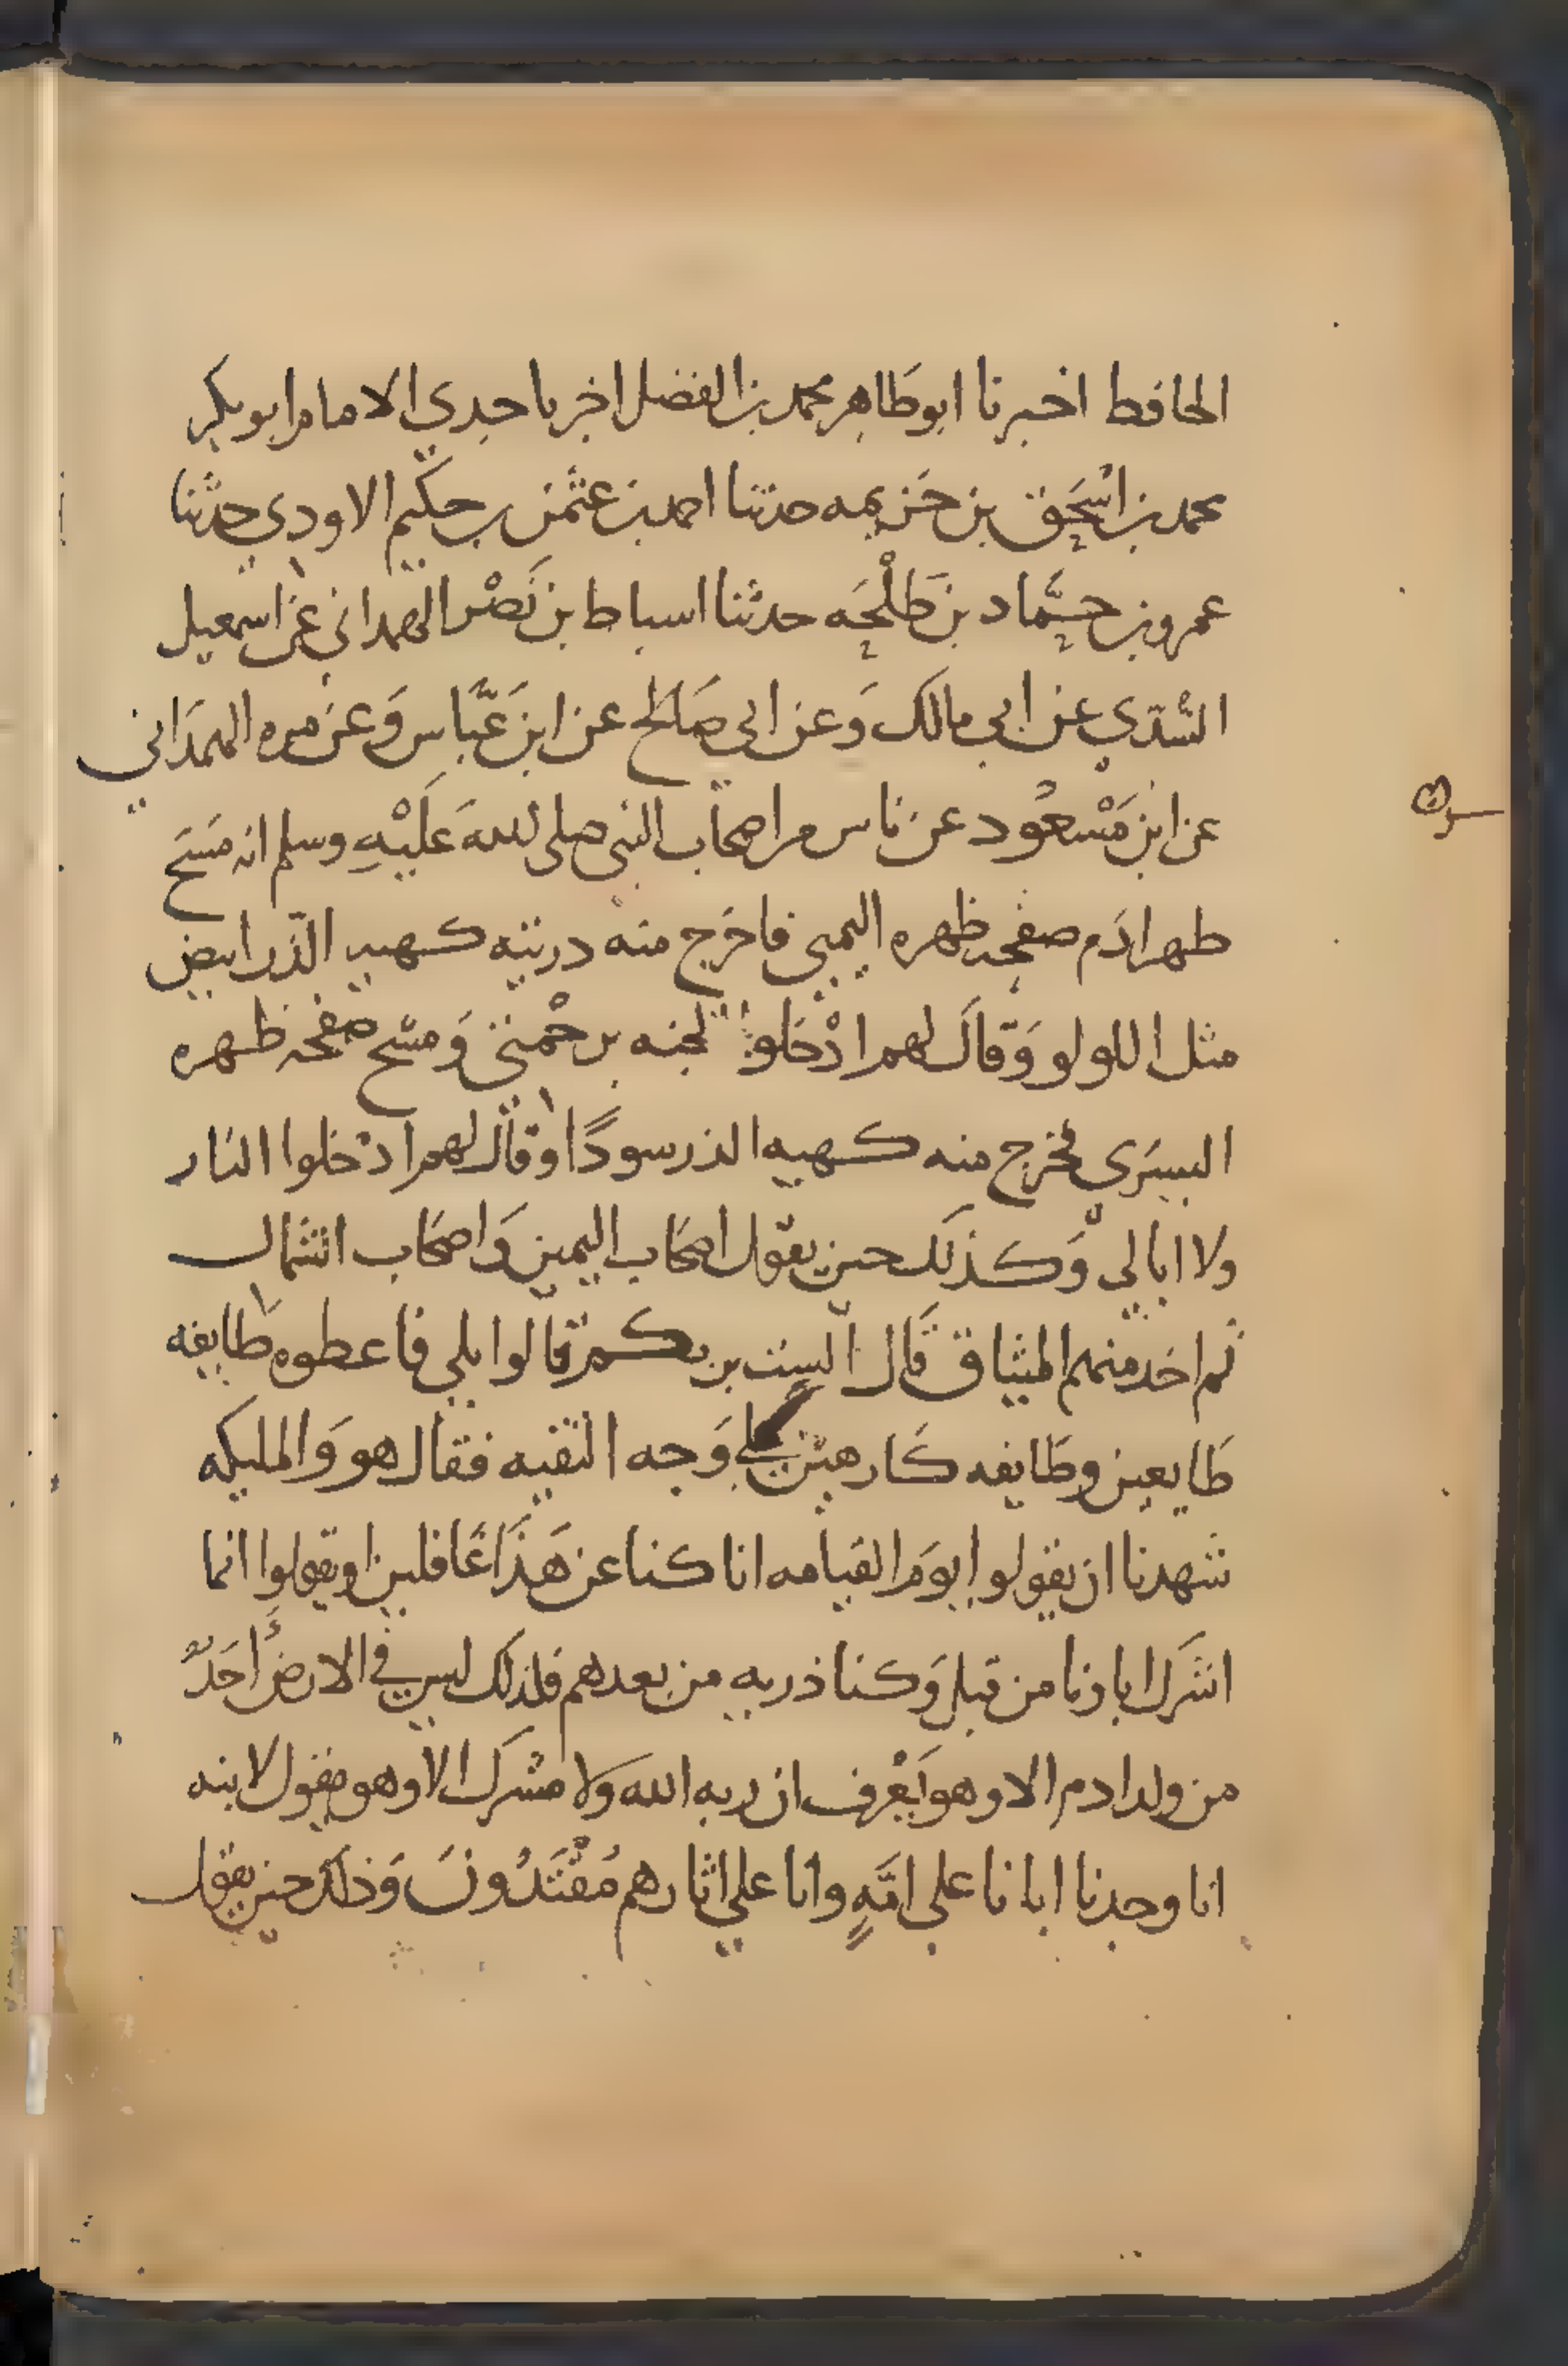 الحافظ اخبرنا ابو طَاهِر محمد بن الفضل اخبرنا جدي الامام ابو بكر
محمد بن اسْحَق بن خَزيمه حدثنا احمد بن عثمٰن بن حكيم الاودي حدثنا
عمرو بن حمَّاد بن طَلْحَه حدثنا اسباط بن نَصْر الهمداني عن اسمعيل
السُّدّي عن ابي مالك وَعن ابي صَالح عن ابن عَبَّاس وَعن مره الهمدَاني
عن ابن مَسْعُود عن ناس من اصحاب النبي صلى الله عَلَيْهِ وسلم انه مَسَح
ظهر ادَم صفحه ظهره اليمني فاخرَج منه دريته كهيه الذّر ابيض
مثل اللولو وَقاَل لهم ادْخَلوا الجنه برحْمتي وَمسَح صفحه ظهره
اليسَري فخرج منه كهيه الذر سودًا وقال لهم ادْخلوا النار
ولا ابالي وَكذَلك حين يقول اصحَاب اليمين وَاصحَاب الشمال
ثم اخذ منهم الميثاق قَال الست بربكم قالوا بلي فاعطوه طَايفه
طَايعين وطَايفه كَارهين علي وَجه التقيه فقال هو وَالمليكه
شهدنا ان يقولوا يوَم القيامه انا كنا عن هَذَا غَافلين او يقولوا انما
اشرَك اباونا من قبل وَكنا ذريه من بعدهم فلذلك ليس في الارضِ أحَدٌ
من ولد ادم الا وهو يَعْرف ان ربه الله وَلا مشرك الا وهو يقول لابنه
انا وجدنا ابانا علي امَّهٍ وانا علي اثارهم مُقْتَدُونَ وَذلك حين يقول